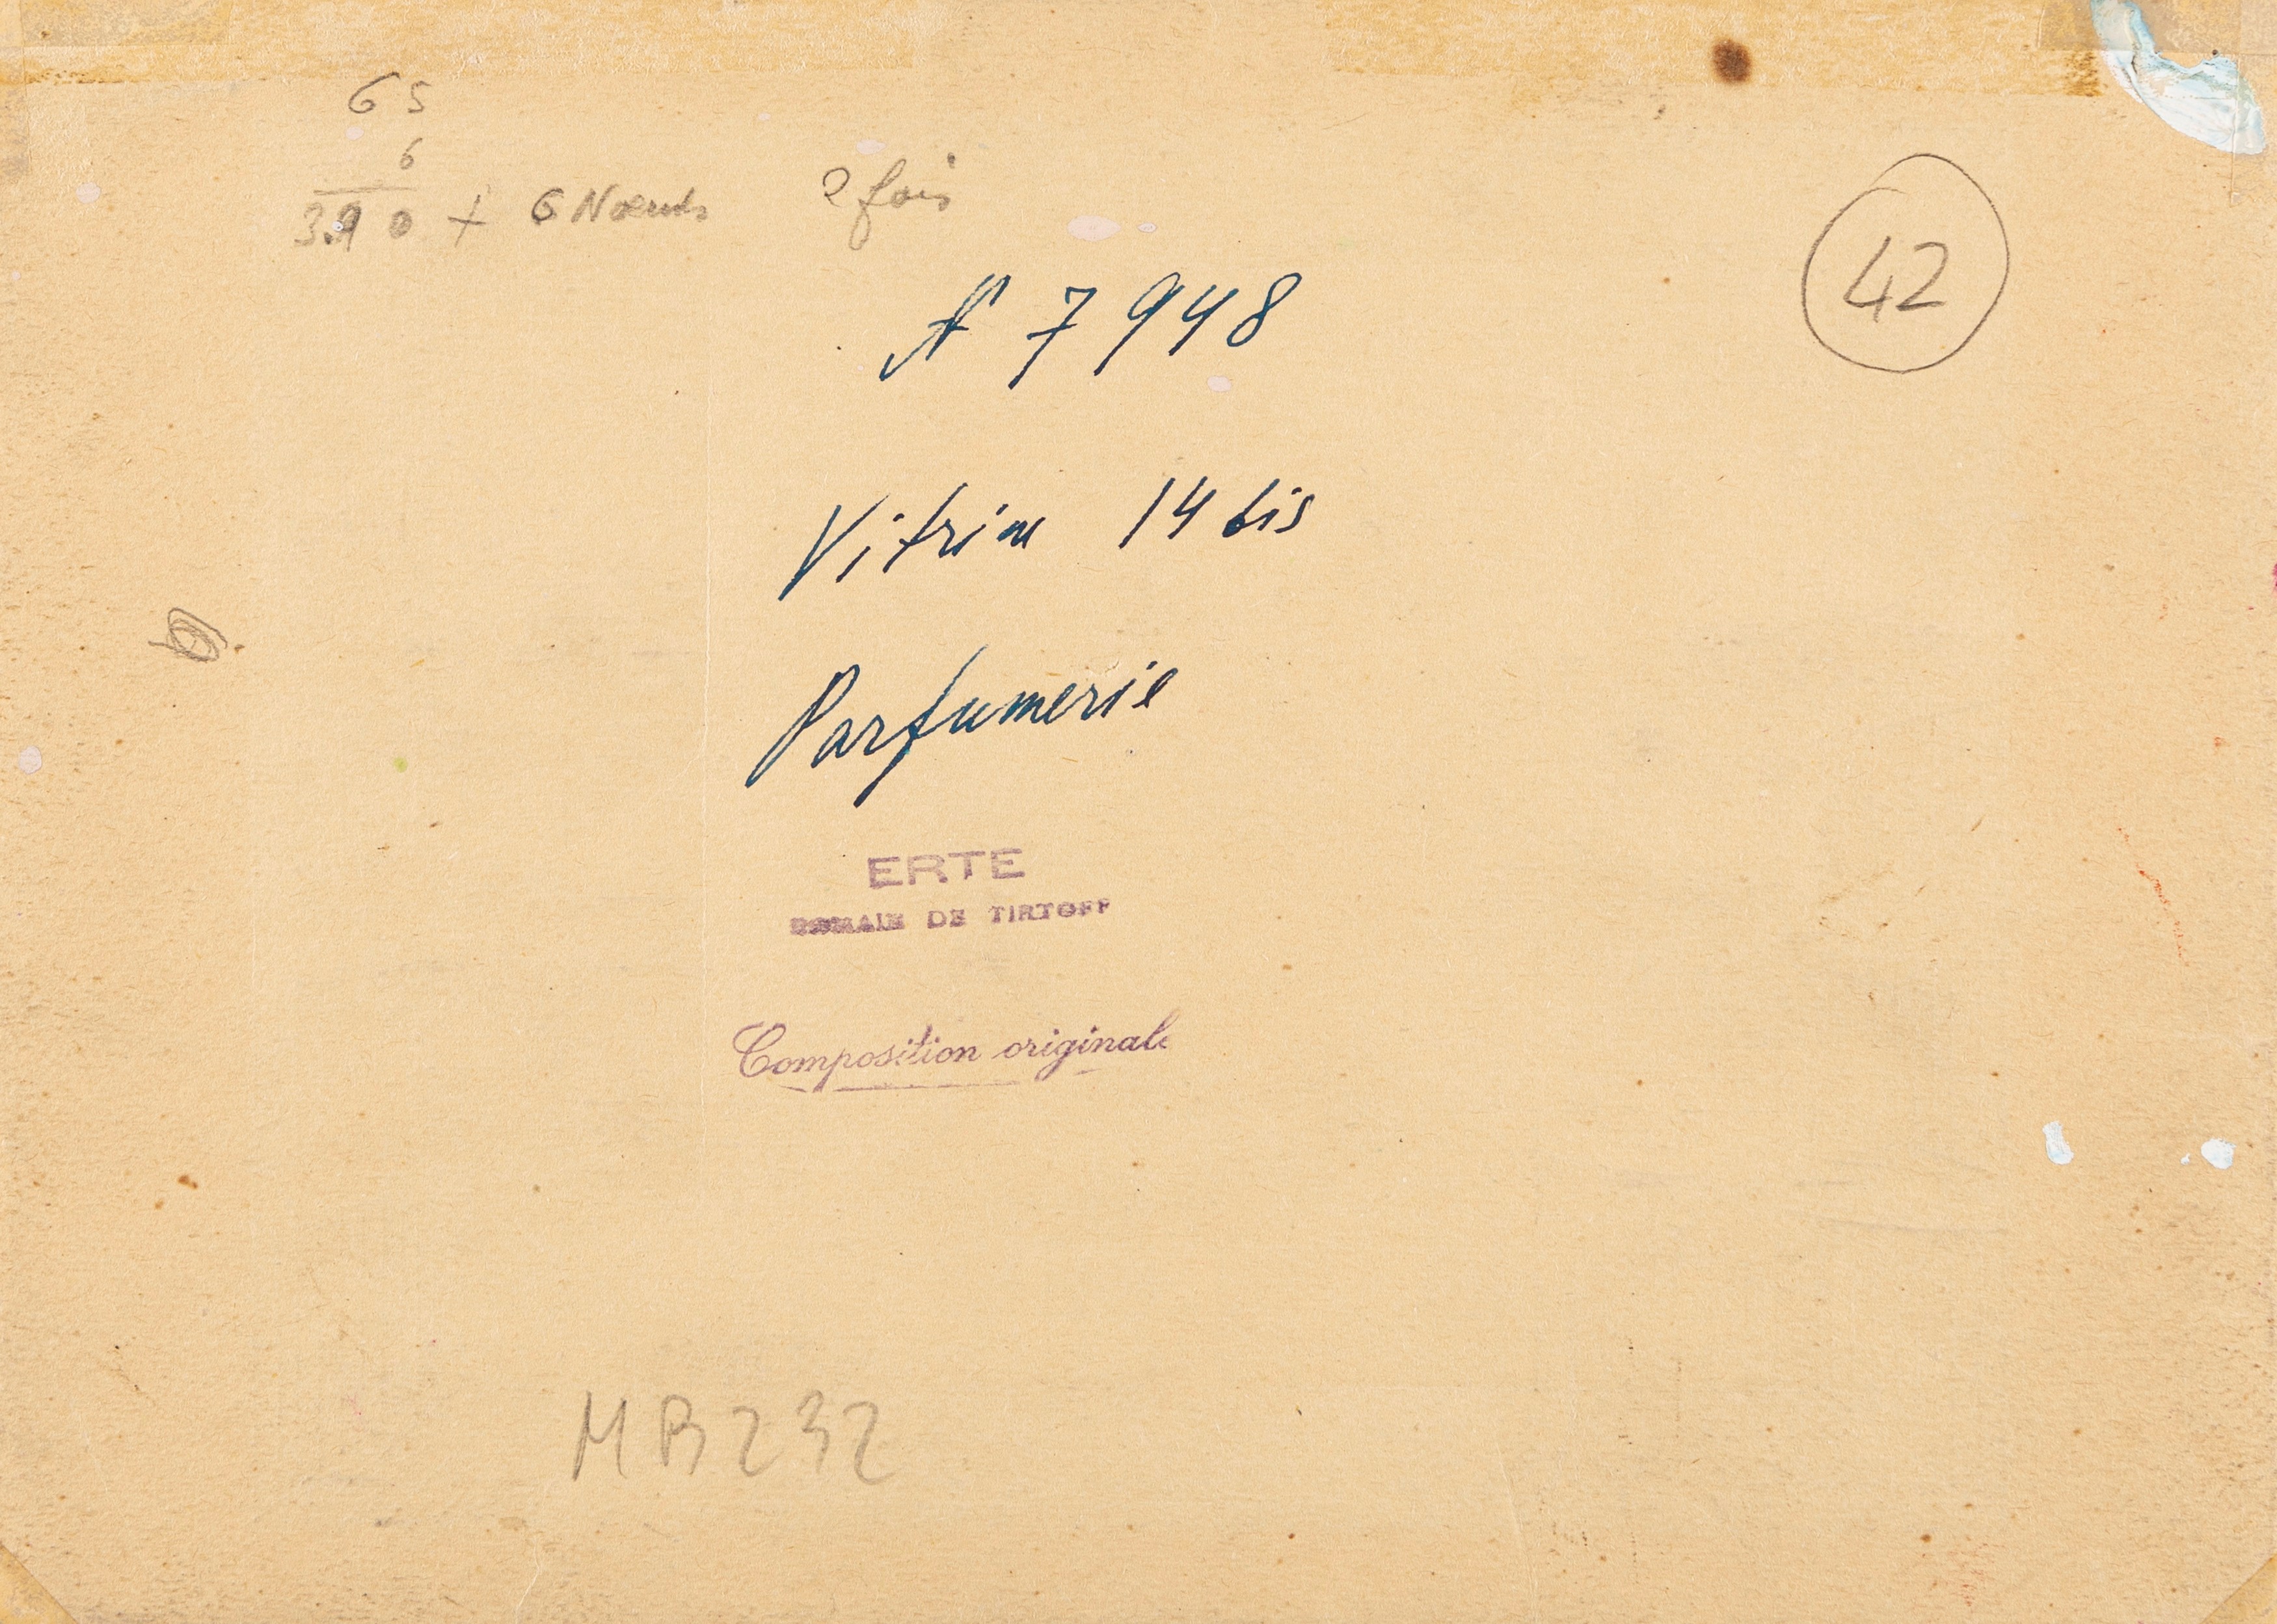 65
6
390 + 6 Nœuds 2 fois
42
N 7948
Vitrine 14 bis
Parfumerie
ERTE
ROMAIN DE TIRTOFF
Composition originale
MB232